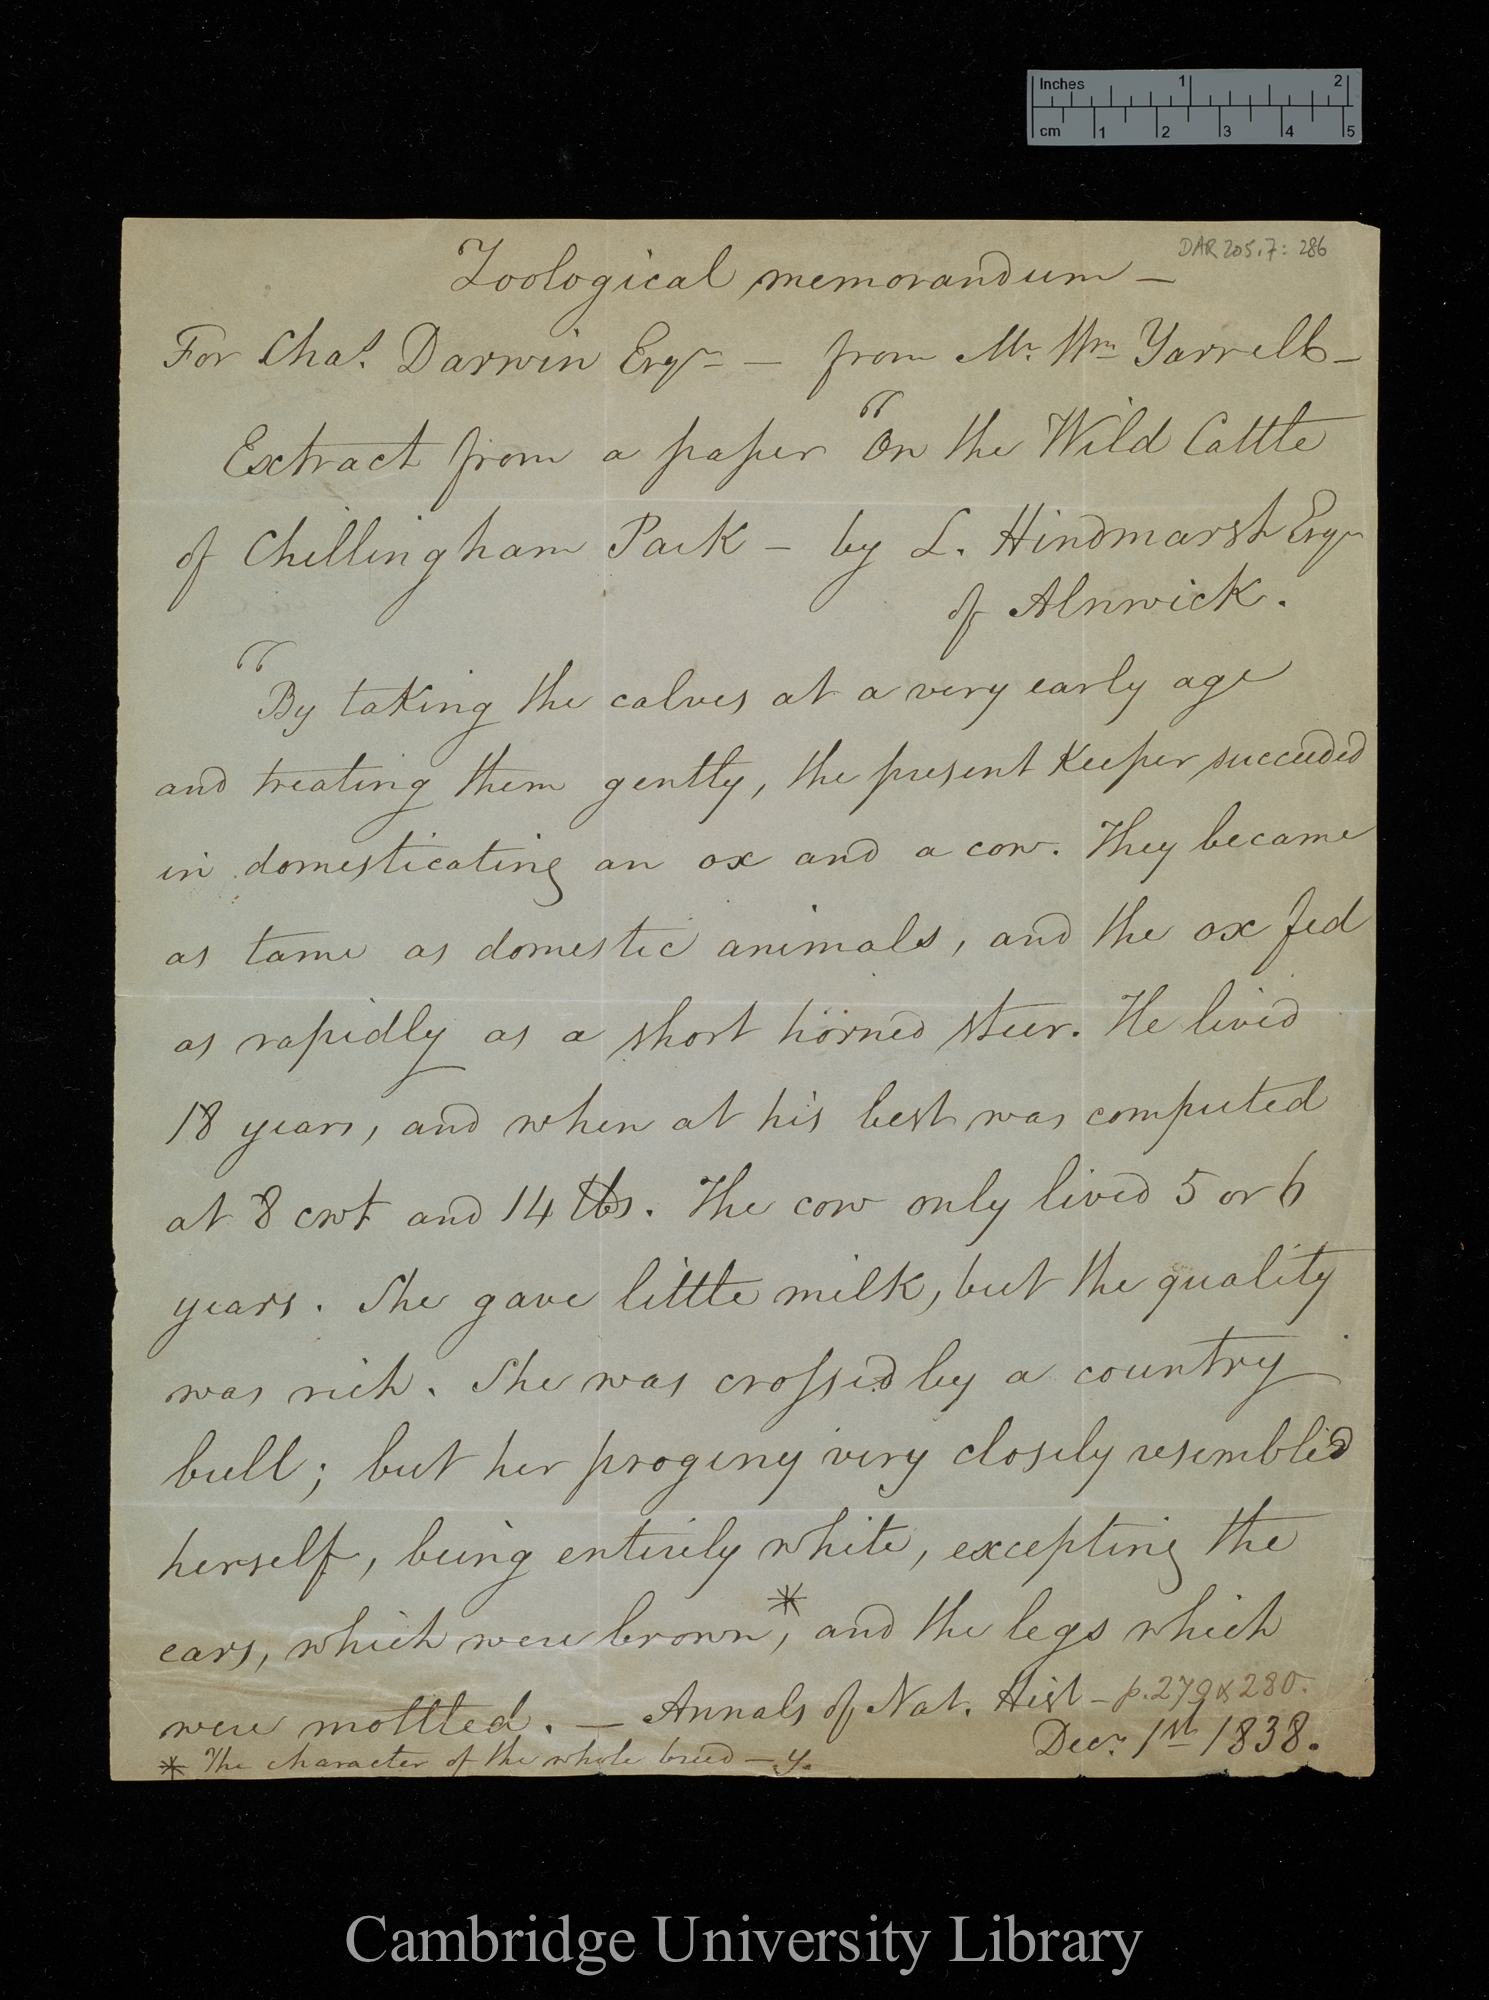 Inches 1 2
cm 1 2 3 4 5
DAR 205.7: 286
Zoological memorandum —
For Chas. Darwin Esqr — from Mr. Wm Yarrell —
Extract from a paper "On the Wild Cattle
of Chillingham Park — by L. Hindmarsh Esqr
of Alnwick.
"By taking the calves at a very early age
and treating them gently, the present Keeper succeeded
in domesticating an ox and a cow. They became
as tame as domestic animals, and the ox fed
as rapidly as a short horned steer. He lived
18 years, and when at his best was computed
at 8 cwt and 14 lbs. The cow only lived 5 or 6
years. She gave little milk, but the quality
was rich. She was crossed by a country
bull; but her progeny very closely resembled
herself, being entirely white, excepting the
ears, which were brown,* and the legs which
were mottled. — Annals of Nat. Hist — p. 279 & 280.
Decr. 1st 1838.
* The character of the whole breed — y.
Cambridge University Library